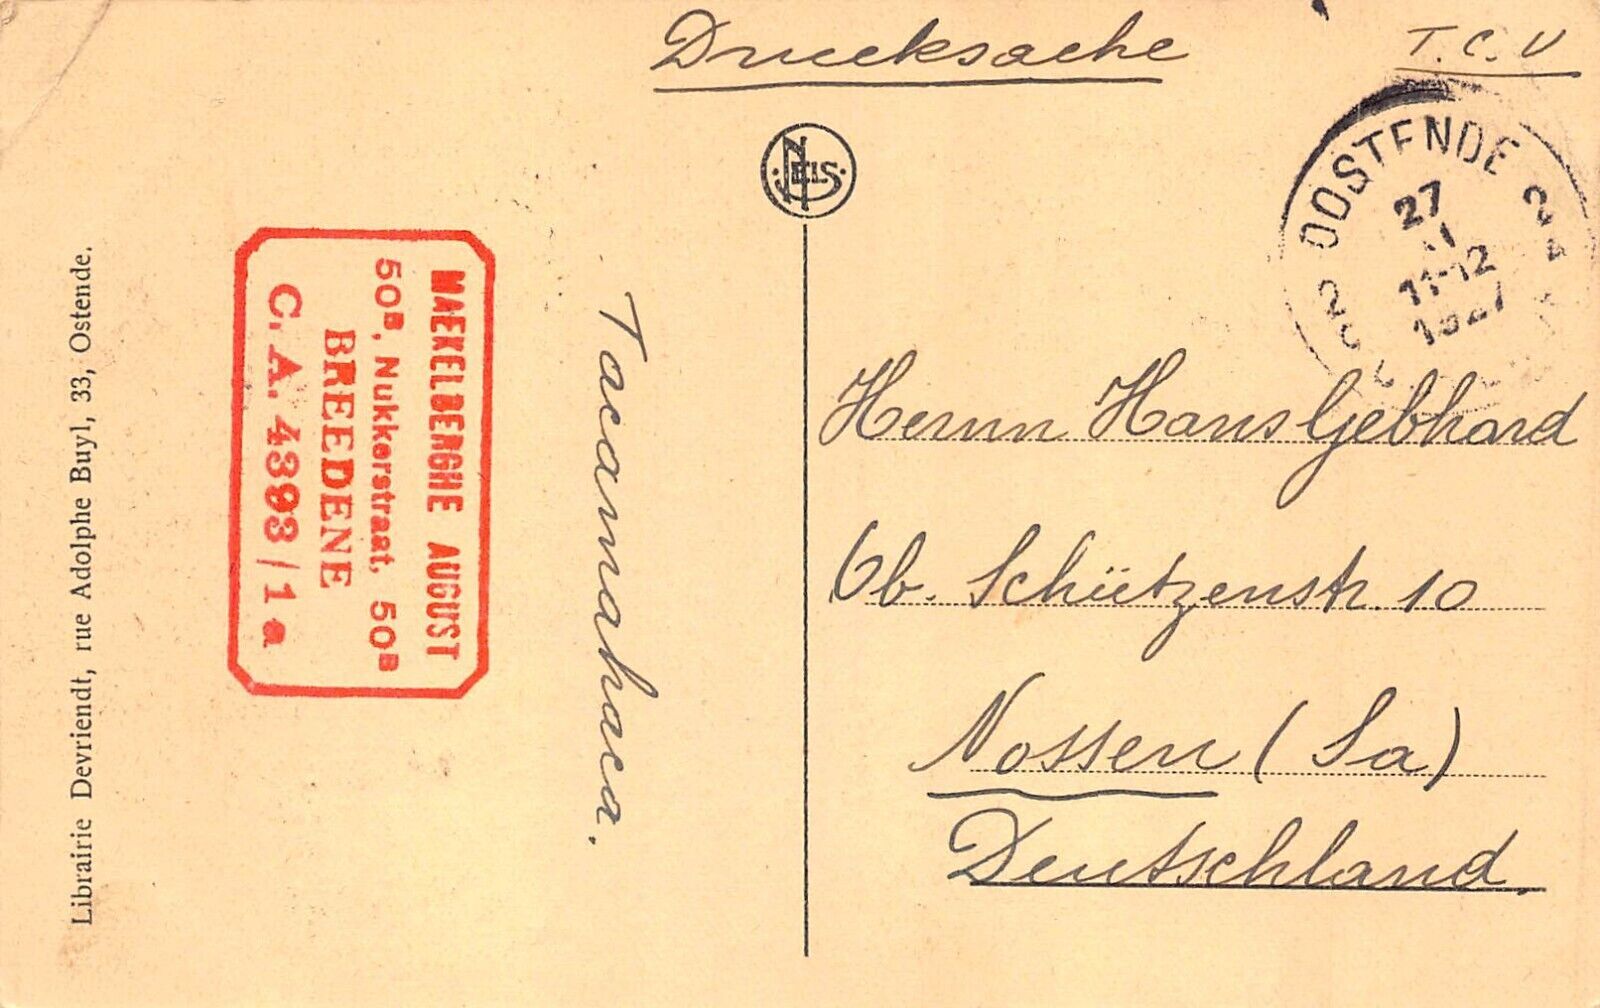 Drucksache
T.C.V
NELS
OOSTENDE
2 2
27
11-12
1927
Herrn Hans Gebhard
Ob. Schützenstr. 10
Nossen (Sa)
Deutschland.
Tacamahaca.
MAEKELBERGHE AUGUST
50B, Nukkerstraat, 50B
BREEDENE
C. A. 4393/1a
Librairie Devriendt, rue Adolphe Buyl, 33, Ostende.